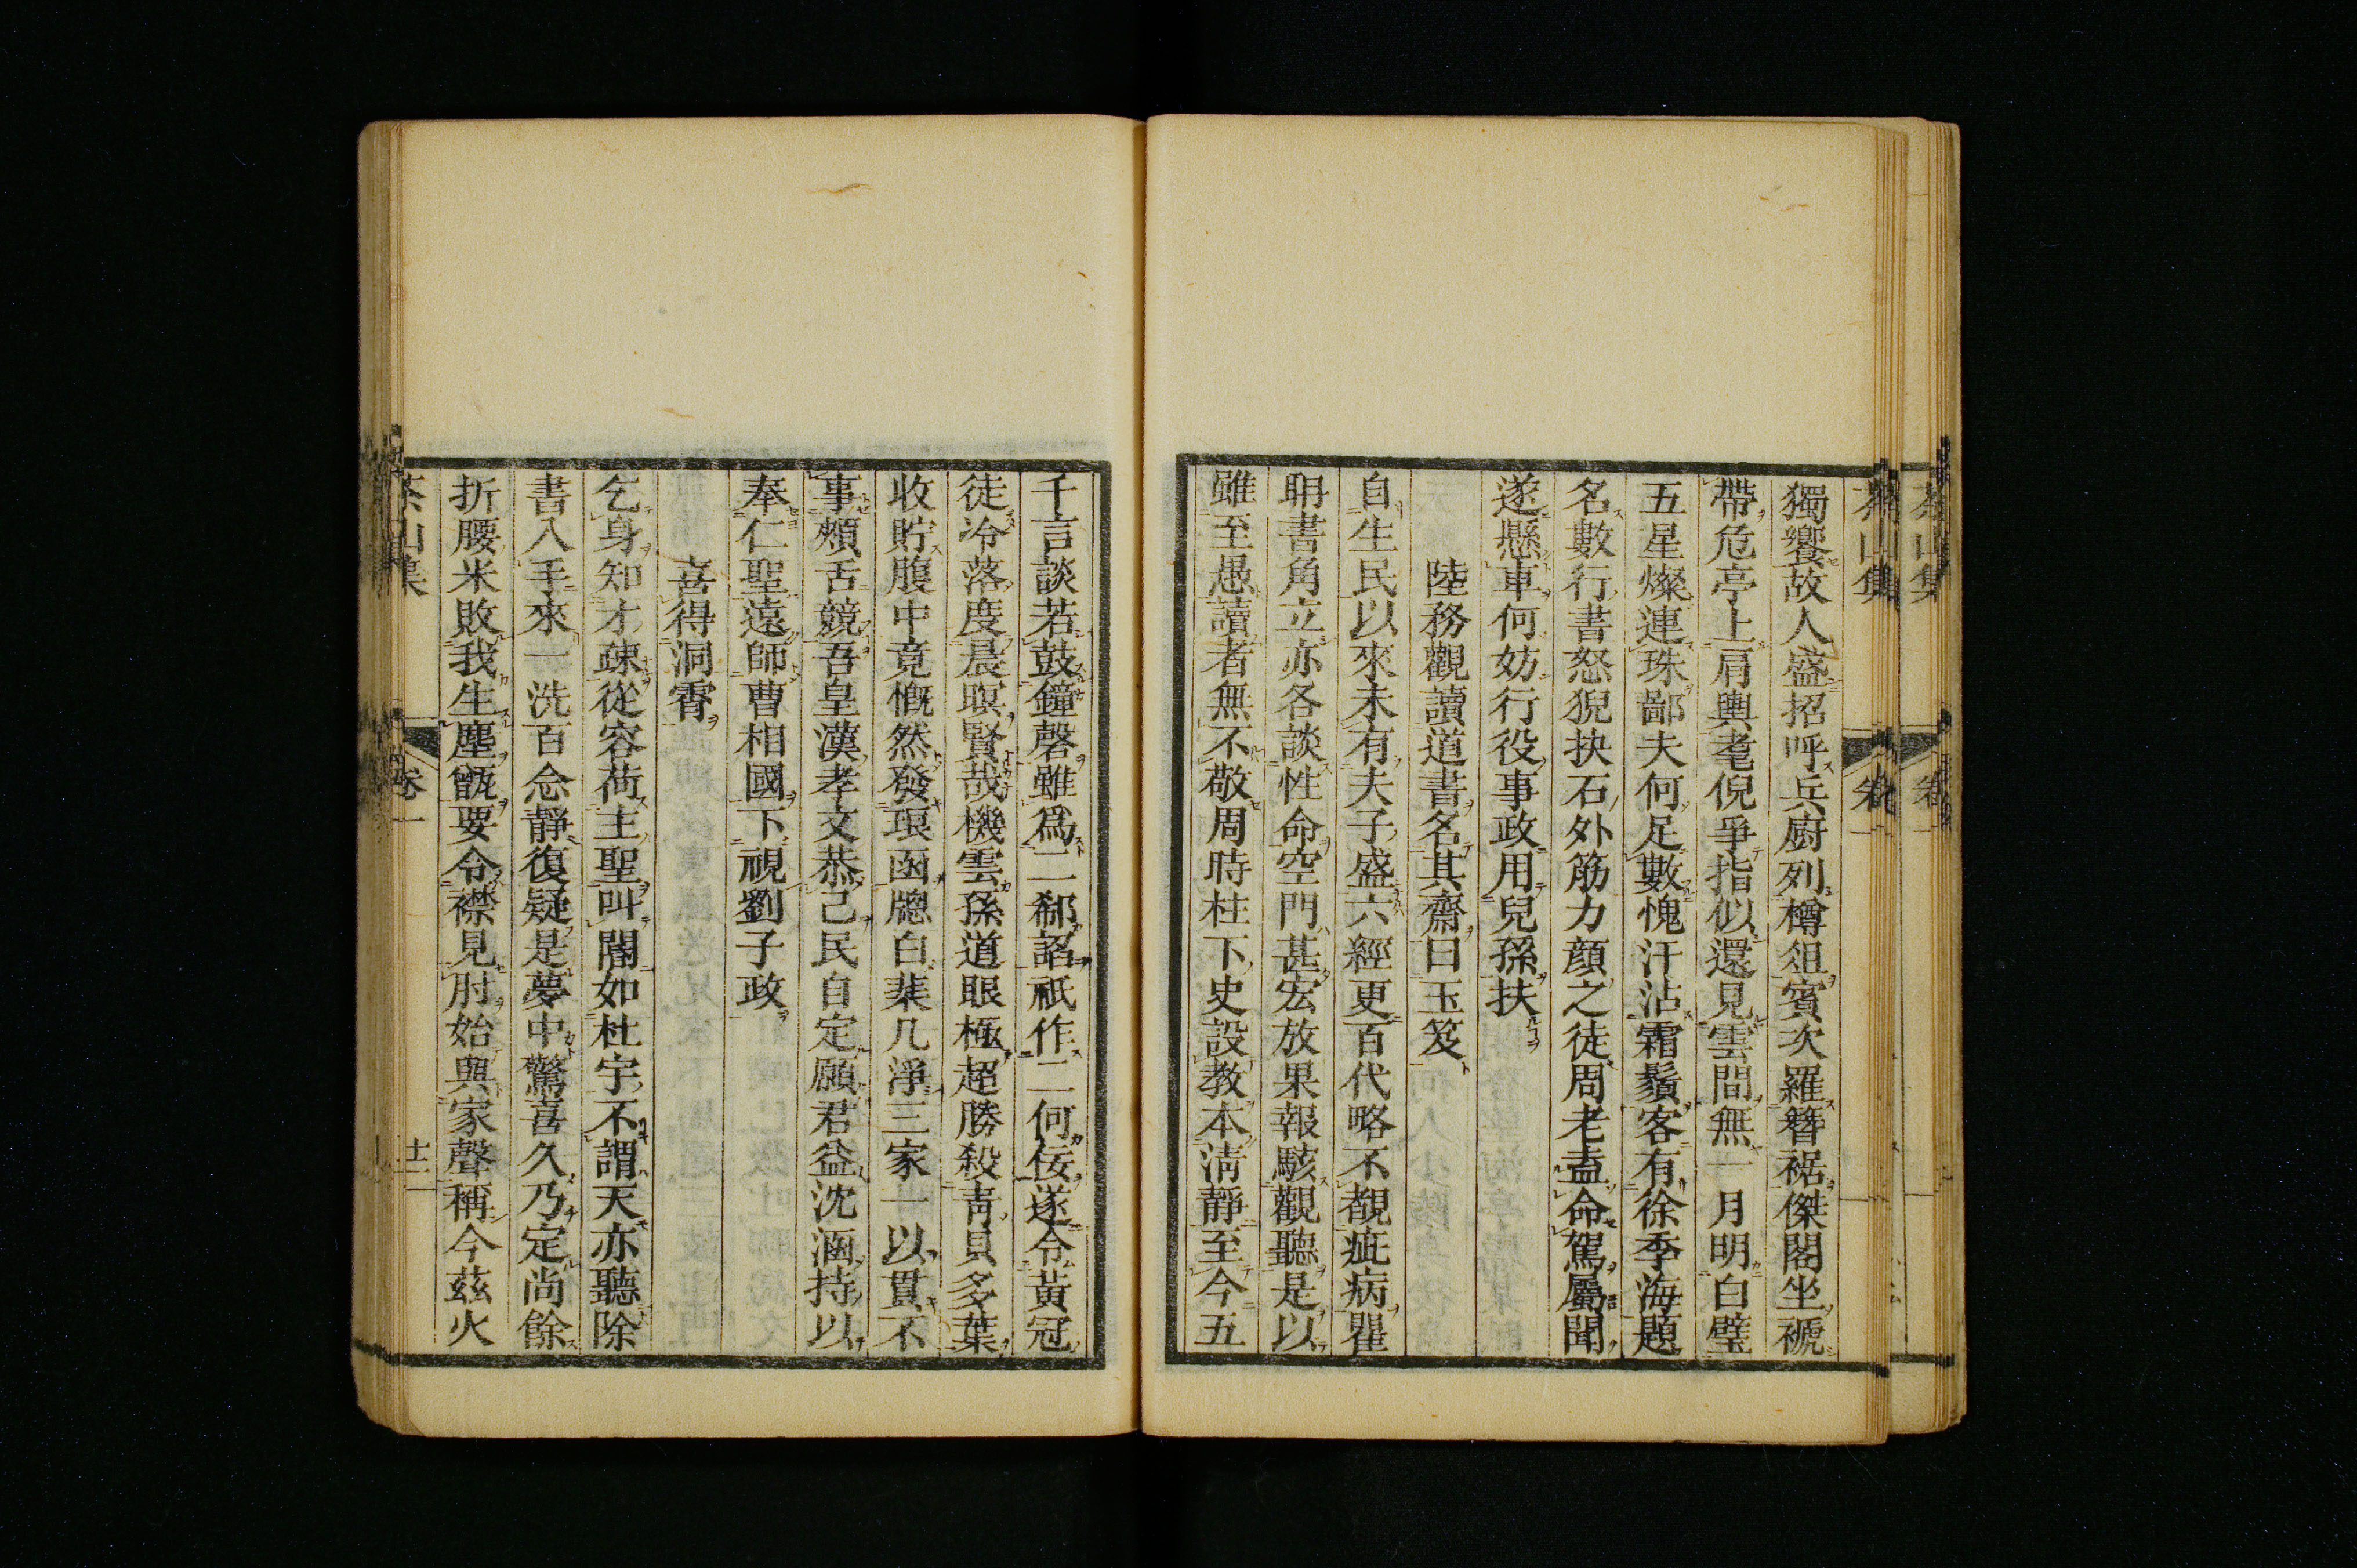 獨饗故人盛招呼兵廚列樽俎賓次羅簪裾傑閣坐褫
帶危亭上肩輿耄倪爭指似還見雲間無一月明白璧
五星燦連珠鄙夫何足數愧汗沾霜鬚客有徐季海題
名數行書怒猊抉石外筋力顏之徒周老盍命駕屬聞
遂懸車何妨行役事政用兒孫扶
陸務觀讀道書名其齋曰玉笈
自生民以來未有夫子盛六經更百代略不覩疵病瞿
聃書角立亦各談性命空門甚宏放果報駭觀聽是以
雖至愚讀者無不敬周時柱下史設教本淸靜至今五
千言談若鼓鐘磬雖爲二郗諂祇作二何佞遂令黃冠
徒冷落度晨暝賢哉機雲孫道眼極超勝殺靑貝多葉
收貯腹中竟慨然發琅函牕白棐几淨三家一以貫不
事頰舌競吾皇漢孝文恭己民自定願君益沈涵持以
奉仁聖遠師曹相國下視劉子政
喜得洞霄
乞身知才疎從容荷主聖叫閽如杜宇不謂天亦聽除
書入手來一洗百念靜復疑是夢中驚喜久乃定尚餘
折腰米敗我生塵甑要令襟見肘始與家聲稱今茲火
茶山集
卷一
十二